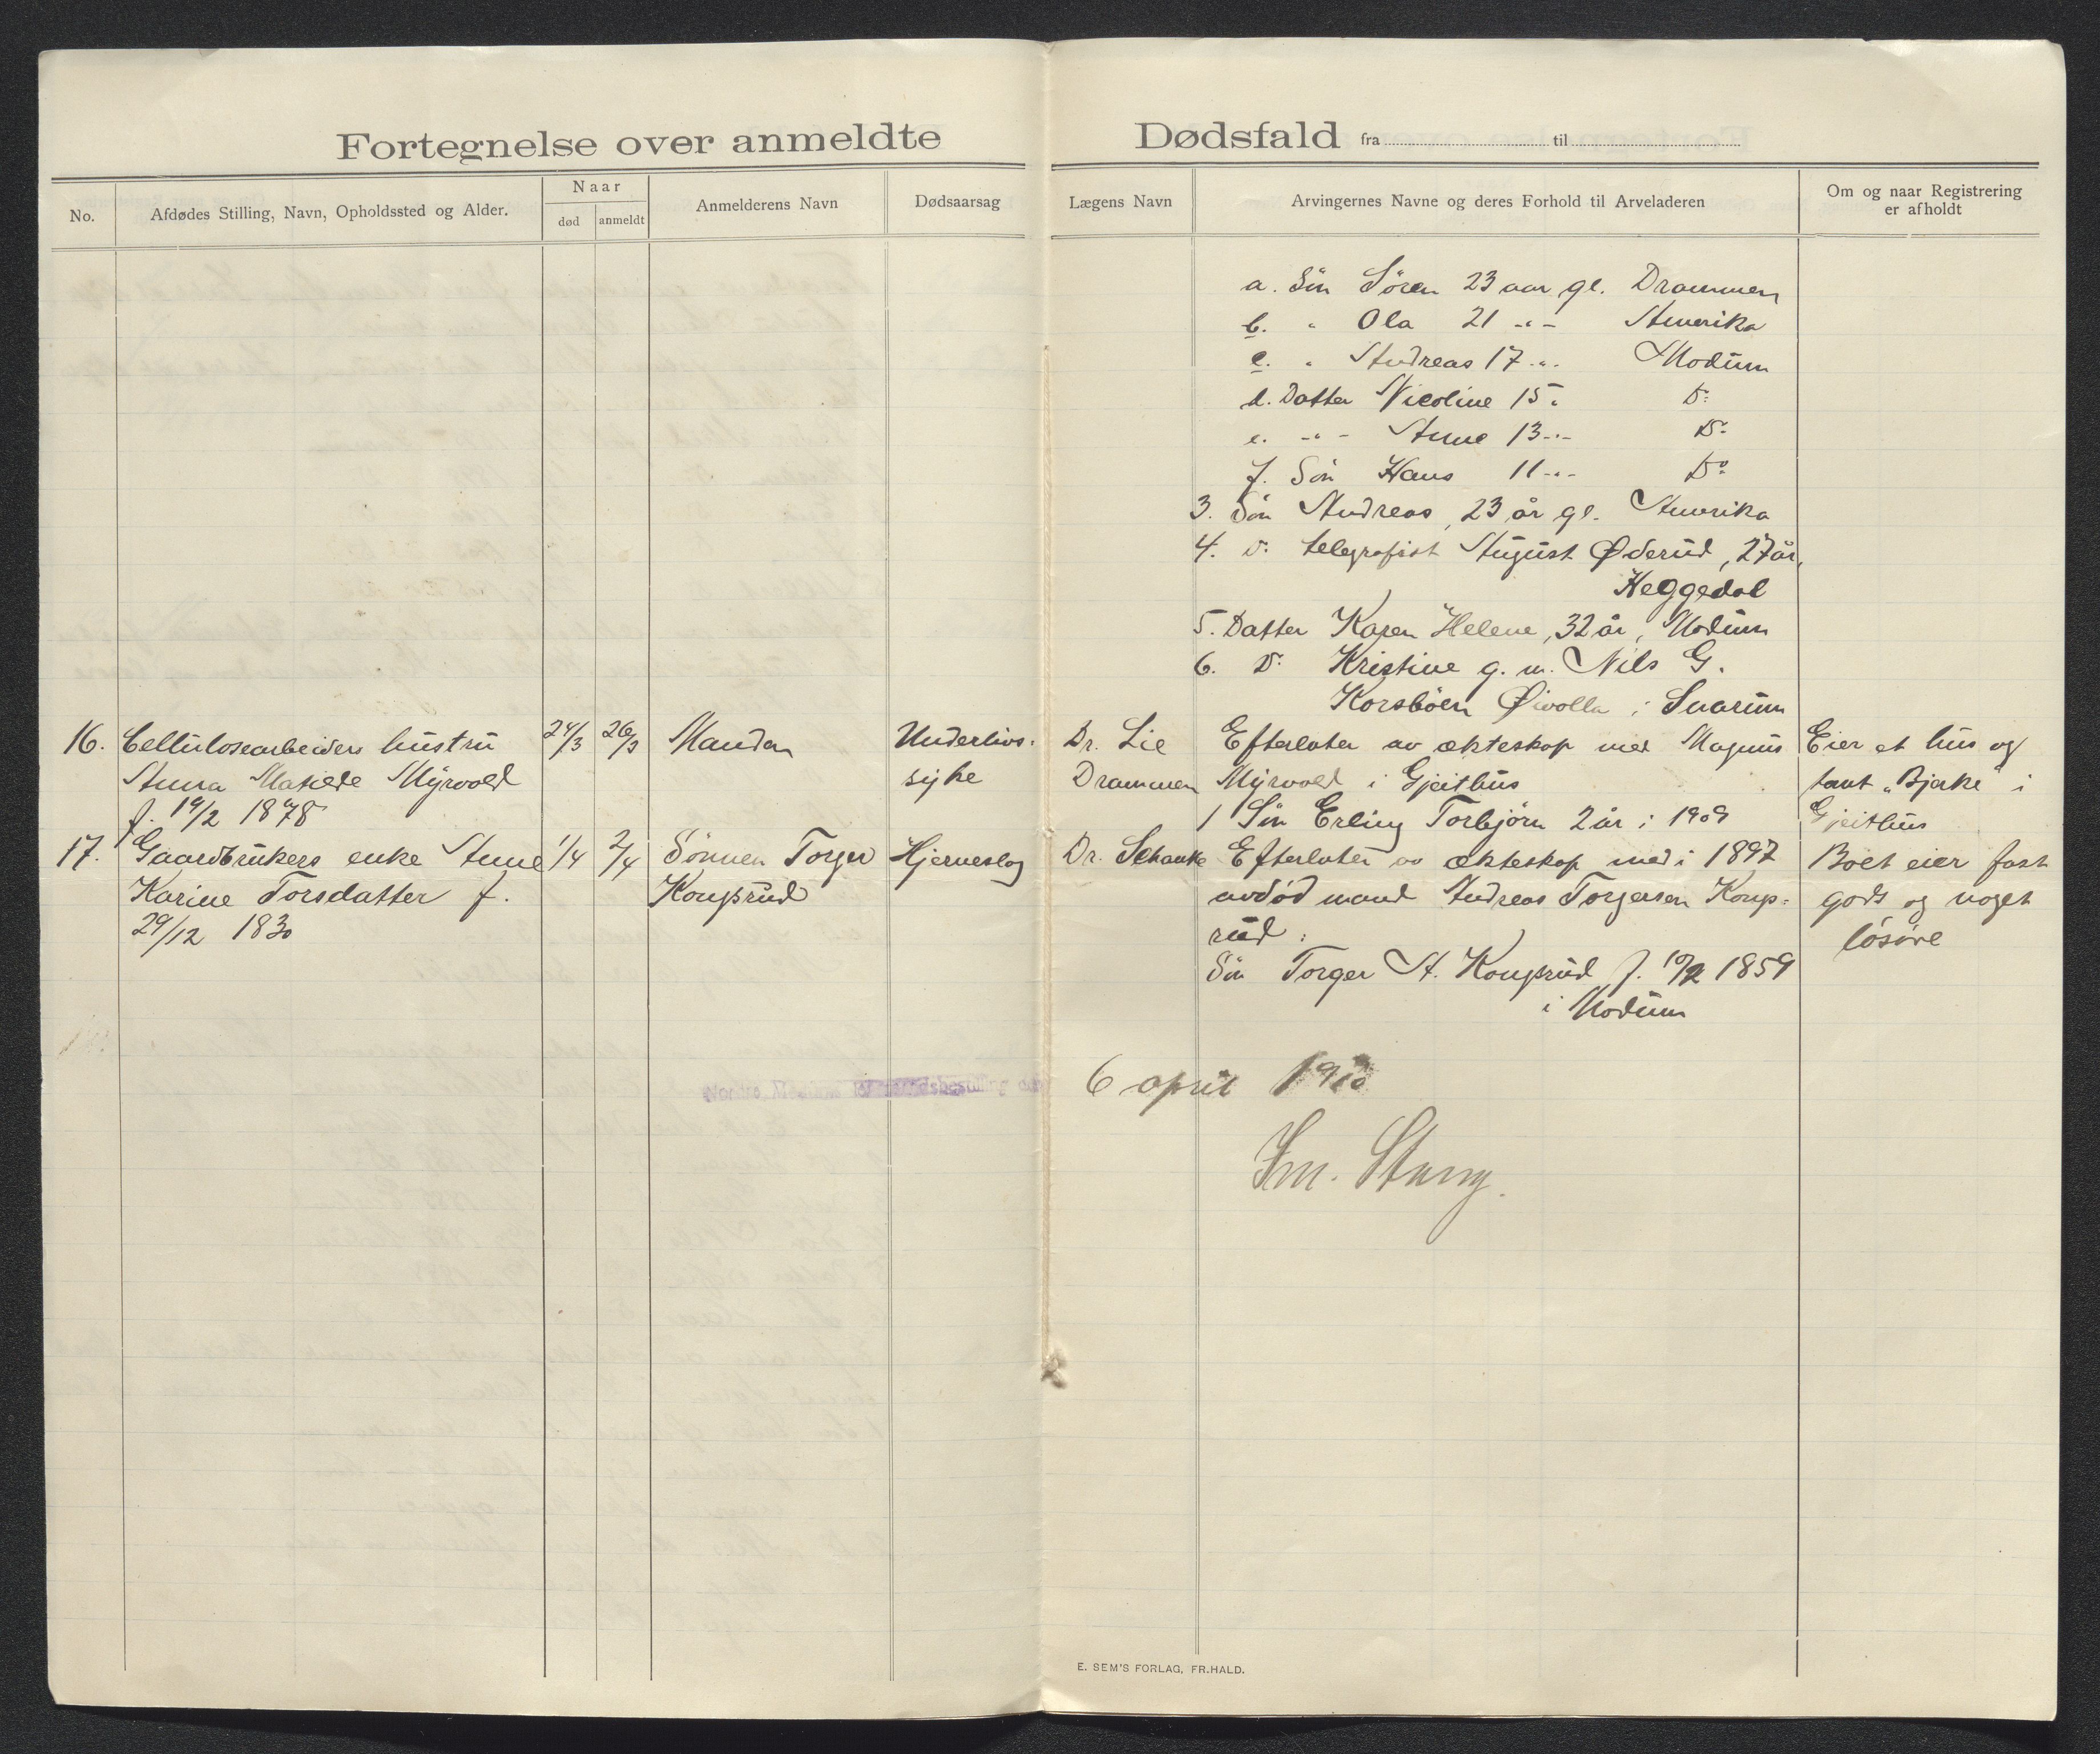 Fortegnelse over anmeldte Dødsfald fra til
No.
Afdødes Stilling, Navn, Opholdssted og Alder.
Naar
død
anmeldt
Anmelderens Navn
Dødsaarsag
Lægens Navn
Arvingernes Navne og deres Forhold til Arveladeren
Om og naar Registrering
er afholdt
a. Sön Sören 23 aar gl. Drammen
b. " Ola 21 -"- Amerika
c. " Andreas 17 -"- Modum
d. Datter Nicoline 15 " Do
e. -"- Anne 13 -"- Do
f. Sön Hans 11 -"- Do
3. Sön Andreas, 23 år gl. Amerika
4. Do telegrafist August Øderud, 27 år,
Heggedal
5. Datter Karen Helene, 32 år, Modum
6. Do Kristine g. m. Nils G.
Korsböen Øivolla i Snarum
16.
Cellulosearbeiders hustru
Anna Matilde Myrvold
f. 19/2 1878
24/3
26/3
Manden
Underlivs-
syke
Dr. Lie
Drammen
Efterlater av ekteskap med Magnus
Myrvold i Gjeithus
1 Sön Erling Torbjörn 2 år i 1909
Eier et hus og
tomt "Bjerke" i
Gjeithus
17.
Gaardbrukers enke Anne
Karine Torsdatter f.
29/12 1830
1/4
2/4
Sönnen Torger
Kongsrud
Hjerneslag
Dr. Schanke
Efterlater av ekteskap med i 1897
avdöd mand Andreas Torgersen Kongs-
rud:
Sön Torger A. Kongsrud f. 10/2 1859
i Modum
Boet eier fast
gods og noget
lösöre
Nordre Modums lensmandsbestilling den
6 april 1910
Fm. Stang.
E. SEM'S FORLAG, FR.HALD.